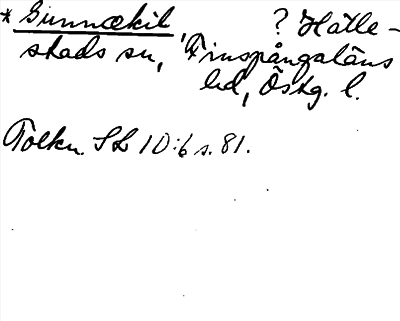 * Gunnækil ? Hälle-
stads sn, Finspångaläns
hd, Östg. l.
Tolkn. SL 10:6 s. 81.